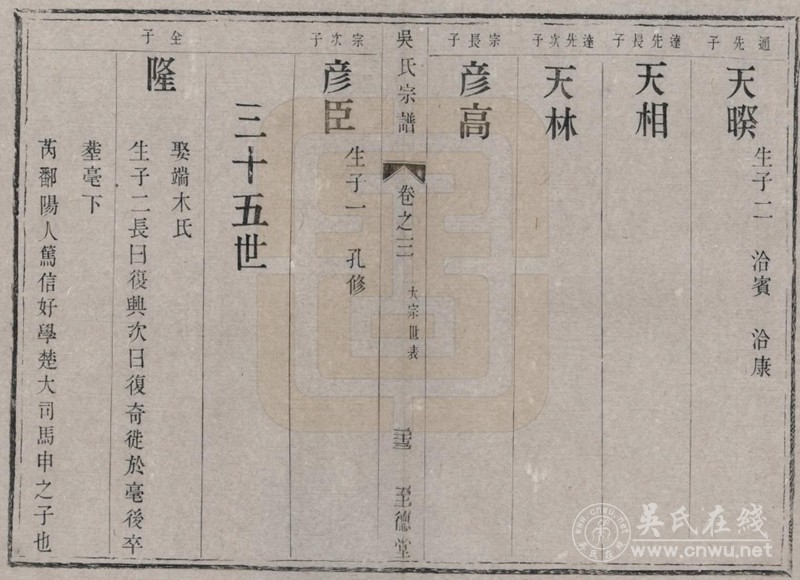 通先子
天暌
生子二 洽賓 洽康
達先長子
天相
達先次子
天林
宗長子
彦高
吳氏宗譜 卷之三 大宗世表 至德堂
宗次子
彦臣
生子一 孔修
三十五世
全子
隆
娶端木氏
生子二長曰復興次曰復奇徙於毫後卒
塟毫下
芮鄱陽人篤信好學楚大司馬申之子也
吳氏在线
www.cnwu.net